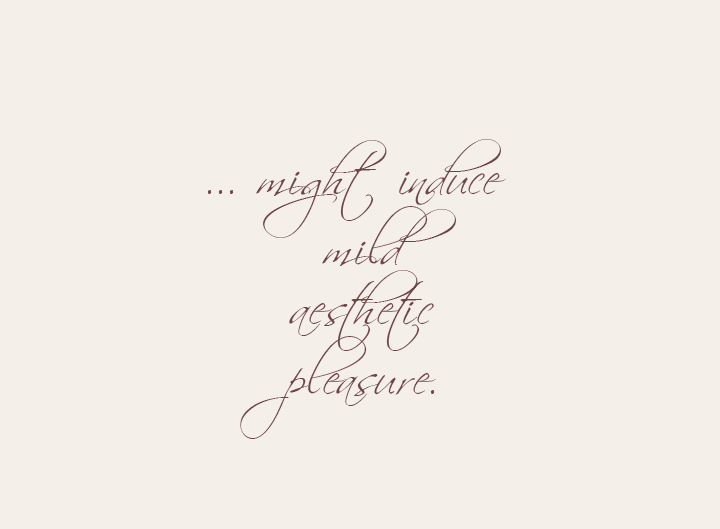 ... might induce
mild
aesthetic
pleasure.